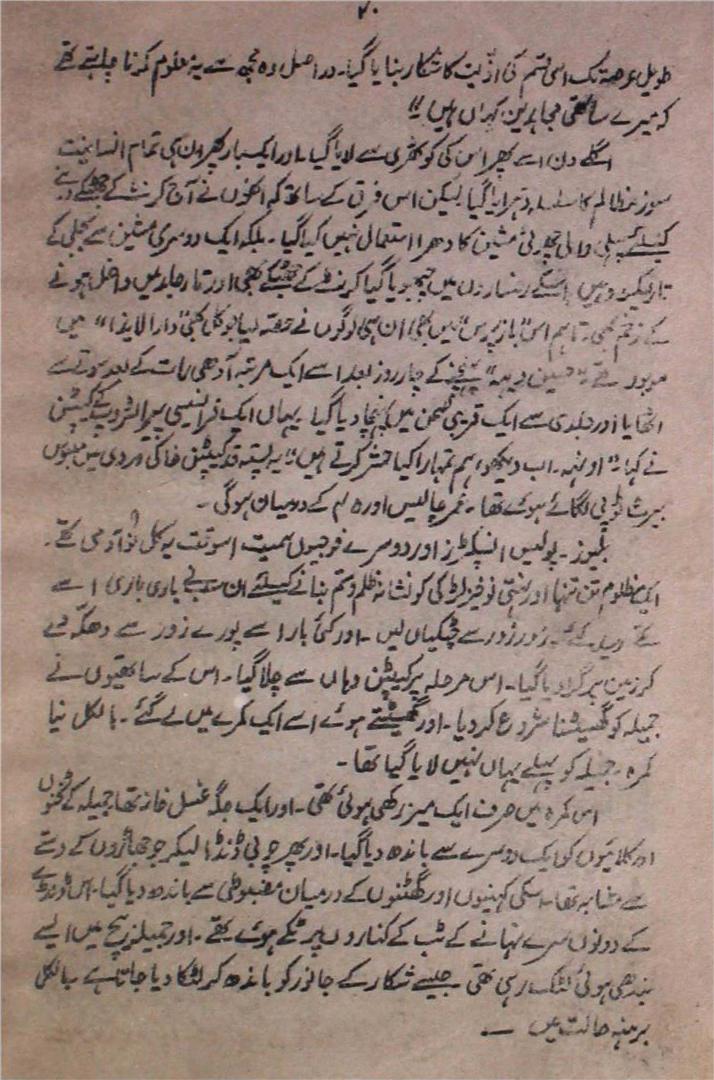 ۷۰
طویل عرصہ تک اسی قسم کی اذیت کا شکار بنایا گیا۔ دراصل وہ مجھ سے یہ معلوم کرنا چاہتے تھے
کہ میرے ساتھی مجاہدین کہاں ہیں"
اگلے دن اسے پھر اس کی کوٹھری سے لایا گیا۔ اور ایک بار پھر ون ہی تمام انسانیت
سوز مظالم کا سلسلہ دہرایا گیا لیکن اس فرق کے ساتھ کہ انھوں نے آج کرنٹ کے جھٹکے دینے
کیلئے پہلی والی مشین کا دھرا استعمال نہیں کیا گیا۔ بلکہ ایک دوسری مشین سے بجلی کے
تار لیکر اسکے رخساروں میں چبھو یا گیا کرنٹ کے جھٹکے بھی اور تار جلد میں داخل ہونے
کے زخم بھی۔ تاہم اس "باز پرس" میں بھی ان ہی لوگوں نے حصہ لیا جو کل بھی "دار الایذا" میں
موجود تھے "حسین دیہہ" پہنچنے کے چار روز بعد اسے ایک مرتبہ آدھی رات کے بعد سوتے سے
اٹھایا اور جلدی سے ایک قریبی کچن میں پہنچا دیا گیا یہاں ایک فرانسیسی پیراٹروپ کے کیپٹن
نے کہا "اونہہ۔ اب دیکھو ہم تمہارا کیا حشر کرتے ہیں" یہ پستہ قد کیپٹن خاکی وردی میں ملبوس
بیرٹ ٹوپی لگائے ہوئے تھا۔ عمر چالیس اور ۴۵ کے درمیان ہوگی۔
بلیوز۔ پولیس انسپکٹرز اور دوسرے فوجیوں سمیت اسوقت یہ کل نو آدمی تھے۔
ایک مظلوم تن تنہا اور نہتی نوخیز لڑکی کو نشانۂ ظلم و ستم بنانے کیلئے ان سب نے باری باری اسے
زور زور سے چٹکیاں لیں۔ اور کئی بار اسے پورے زور سے دھکہ دے
کر زمین پر گرا دیا گیا۔ اس مرحلہ پر کیپٹن وہاں سے چلا گیا۔ اس کے ساتھیوں نے
جمیلہ کو گھسیٹنا شروع کر دیا۔ اور گھسیٹتے ہوئے اسے ایک کمرے میں لے گئے۔ بالکل نیا
کمرہ۔ جمیلہ کو پہلے یہاں نہیں لایا گیا تھا۔
اس کمرہ میں صرف ایک میز رکھی ہوئی تھی۔ اور ایک جگہ غسل خانہ تھا جمیلہ کے ٹخنوں
اور کلائیوں کو ایک دوسرے سے باندھ دیا گیا۔ اور پھر چوبی ڈنڈا لیکر جو جھاڑوں کے دستے
سے مشابہ تھا۔ اسکی کہنیوں اور گھٹنوں کے درمیان مضبوطی سے باندھ دیا گیا۔ اس ڈنڈے
کے دونوں سرے نہانے کے ٹب کے کناروں پر ٹکے ہوئے تھے۔ اور جمیلہ بیچ میں ایسے
بندھی ہوئی لٹک رہی تھی جیسے شکار کے جانور کو باندھ کر لٹکا دیا جاتا ہے بالکل
برہنہ حالت میں ۔